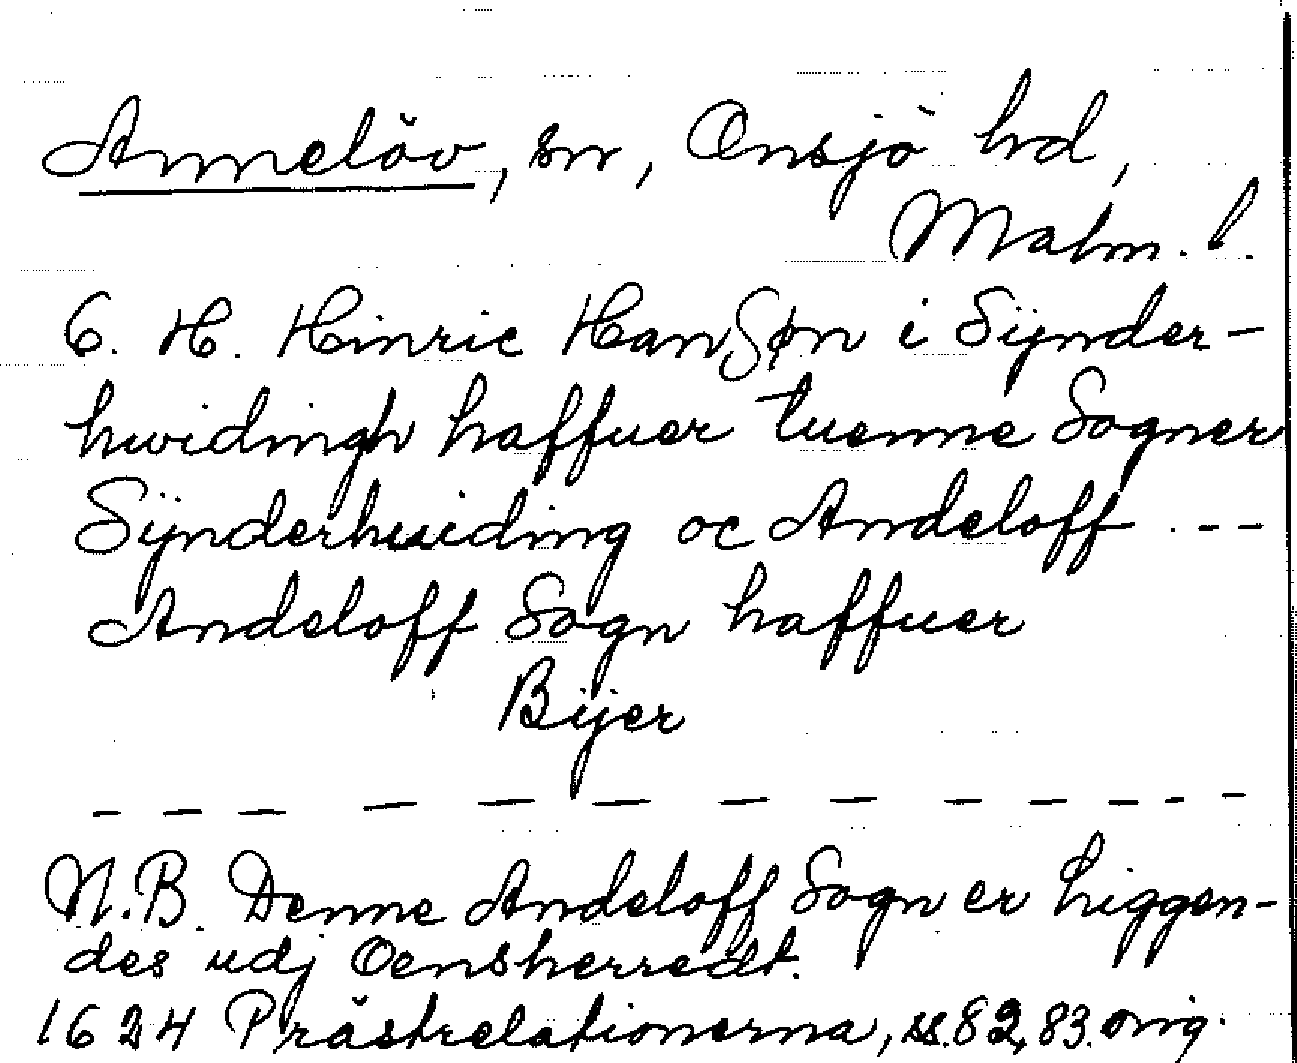 Annelöv, sn, Onsjö hd,
Malm. l.
6. H. Hinric Hanſøn i Sÿnder-
hwidingh haffuer tuenne Sogner
Sÿnderhuiding oc Andeloff . - -
Andeloff Sogn haffuer
Bijer
- - - - - - - - - - - -
N.B. Denne Andeloff Sogn er higgen-
des udj Oensherredt.
1624 Prästrelationerna, ss. 82, 83. orig.